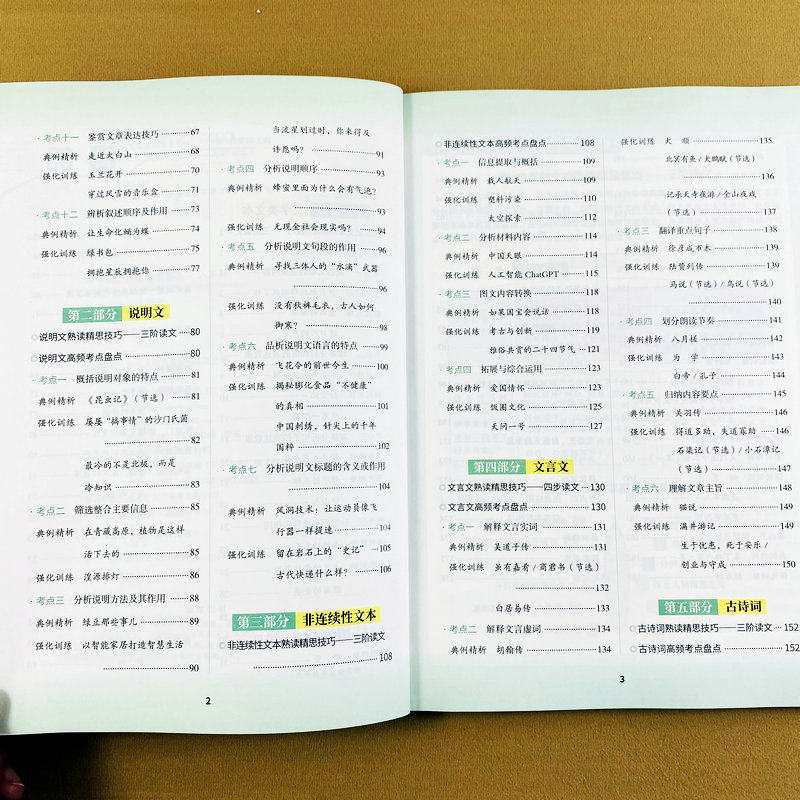 考点十一 鉴赏文章表达技巧 67
典例精析 走近大白山 68
强化训练 玉兰花开 70
穿过风雪的音乐盒 71
考点十二 辨析叙述顺序及作用 73
典例精析 让生命化蛹为蝶 74
强化训练 绿书包 75
拥抱星辰拥抱你 77
第二部分 说明文
说明文熟读精思技巧——三阶读文 80
说明文高频考点盘点 80
考点一 概括说明对象的特点 81
典例精析 《昆虫记》(节选) 81
强化训练 屡屡“搞事情”的沙门氏菌
82
最冷的不是北极,而是
冷知识 83
考点二 筛选整合主要信息 85
典例精析 在青藏高原,植物是这样
活下去的 85
强化训练 湟源排灯 86
考点三 分析说明方法及其作用 88
典例精析 绿豆那些事儿 89
强化训练 以智能家居打造智慧生活
90
当流星划过时,你来得及
许愿吗? 91
考点四 分析说明顺序 93
典例精析 蜂蜜里面为什么会有气泡?
93
强化训练 无现金社会现实吗? 94
考点五 分析说明文句段的作用 96
典例精析 寻找三体人的“水滴”武器
96
强化训练 没有秋裤毛衣,古人如何
御寒? 98
考点六 品析说明文语言的特点 99
典例精析 飞花令的前世今生 100
强化训练 揭秘膨化食品“不健康”
的真相 101
中国刺绣,针尖上的千年
国粹 102
考点七 分析说明文标题的含义或作用
104
典例精析 风洞技术:让运动员像飞
行器一样提速 104
强化训练 留在岩石上的“史记” 105
古代快递什么样? 106
第三部分 非连续性文本
非连续性文本熟读精思技巧——三阶读文
108
2
非连续性文本高频考点盘点 108
考点一 信息提取与概括 109
典例精析 载人航天 109
强化训练 塑料污染 110
太空探索 112
考点二 分析材料内容 114
典例精析 中国天眼 114
强化训练 人工智能 ChatGPT 115
考点三 图文内容转换 118
典例精析 如果国宝会说话 118
强化训练 考古与创新 119
雅俗共赏的二十四节气 121
考点四 拓展与综合运用 123
典例精析 爱国情怀 123
强化训练 版图文化 125
天问一号 127
第四部分 文言文
文言文熟读精思技巧——四步读文 130
文言文高频考点盘点 130
考点一 解释文言实词 131
典例精析 吴道子传 131
强化训练 虽有嘉肴/商君书(节选)
132
白居易传 133
考点二 解释文言虚词 134
典例精析 胡翰传 134
强化训练 大 顺 135
北冥有鱼/大鹏赋(节选)
136
记承天寺夜游/金山夜戏
(节选) 137
考点三 翻译重点句子 138
典例精析 徐彦成市木 139
强化训练 陆贽列传 139
马说(节选)/鸟说(节选)
140
考点四 划分朗读节奏 141
典例精析 八月槎 142
强化训练 为 学 143
白帝/孔子 144
考点五 归纳内容要点 145
典例精析 关羽传 146
强化训练 得道多助,失道寡助 146
石渠记(节选)/小石潭记
(节选) 147
考点六 理解文章主旨 148
典例精析 猫说 149
强化训练 满井游记 149
生于忧患,死于安乐/
创业与守成 150
第五部分 古诗词
古诗词熟读精思技巧——三阶读文 152
古诗词高频考点盘点 152
3